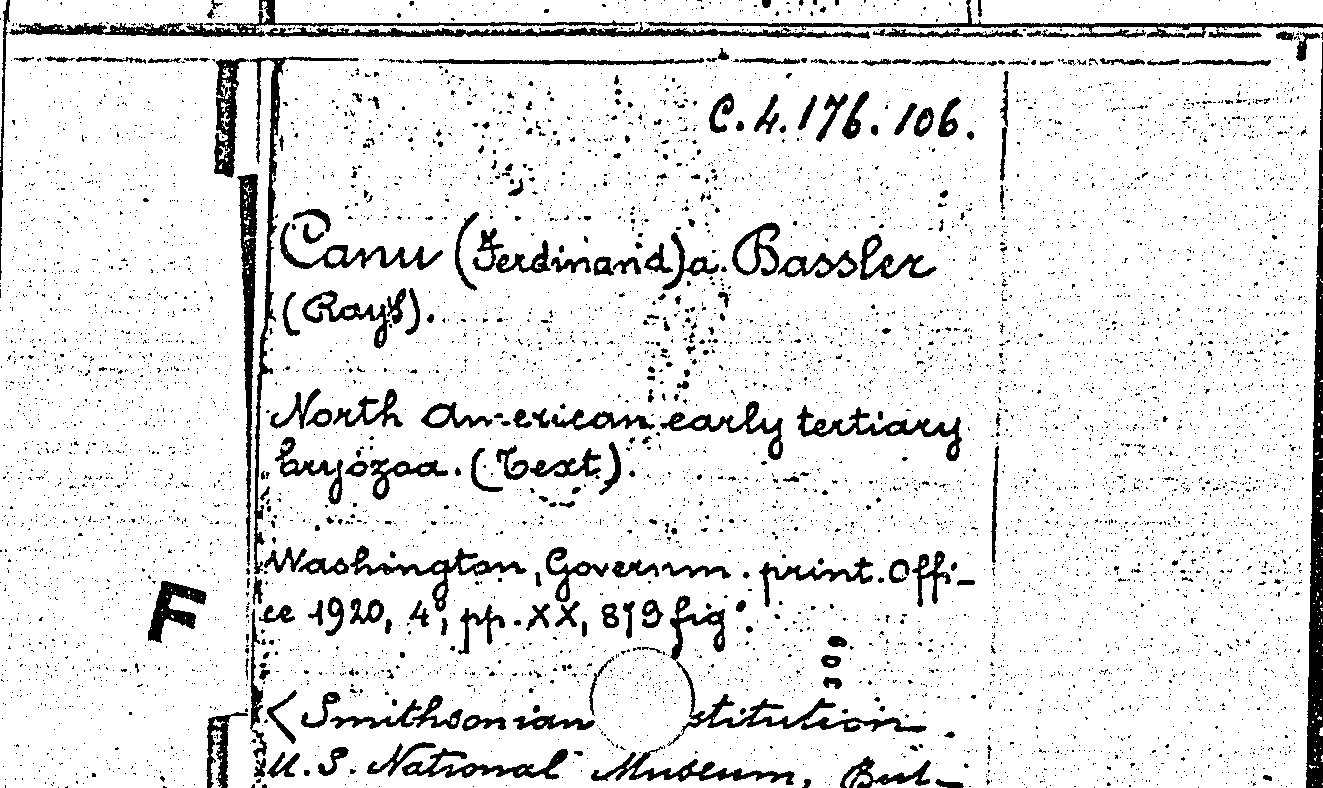 C.4.176.106.
Canu (Ferdinand) a. Bassler
(Ray S).
North American early tertiary
bryozoa. (Text).
Washington, Governm. print. Offi-
ce 1920, 4°, pp. XX, 879 fig°.
309
F
< Smithsonian stitution.
U.S. National Museum, Bul-